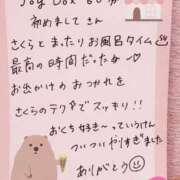 Joy Box 60分
初めまして さん
さくらと まったり お風呂タイム
最高の時間だったな〜♡
お出かけの おつかれを
さくらのテクで スッキリ!!
おくち好き〜っていうけん
ついつい やりすぎました
ありがとう